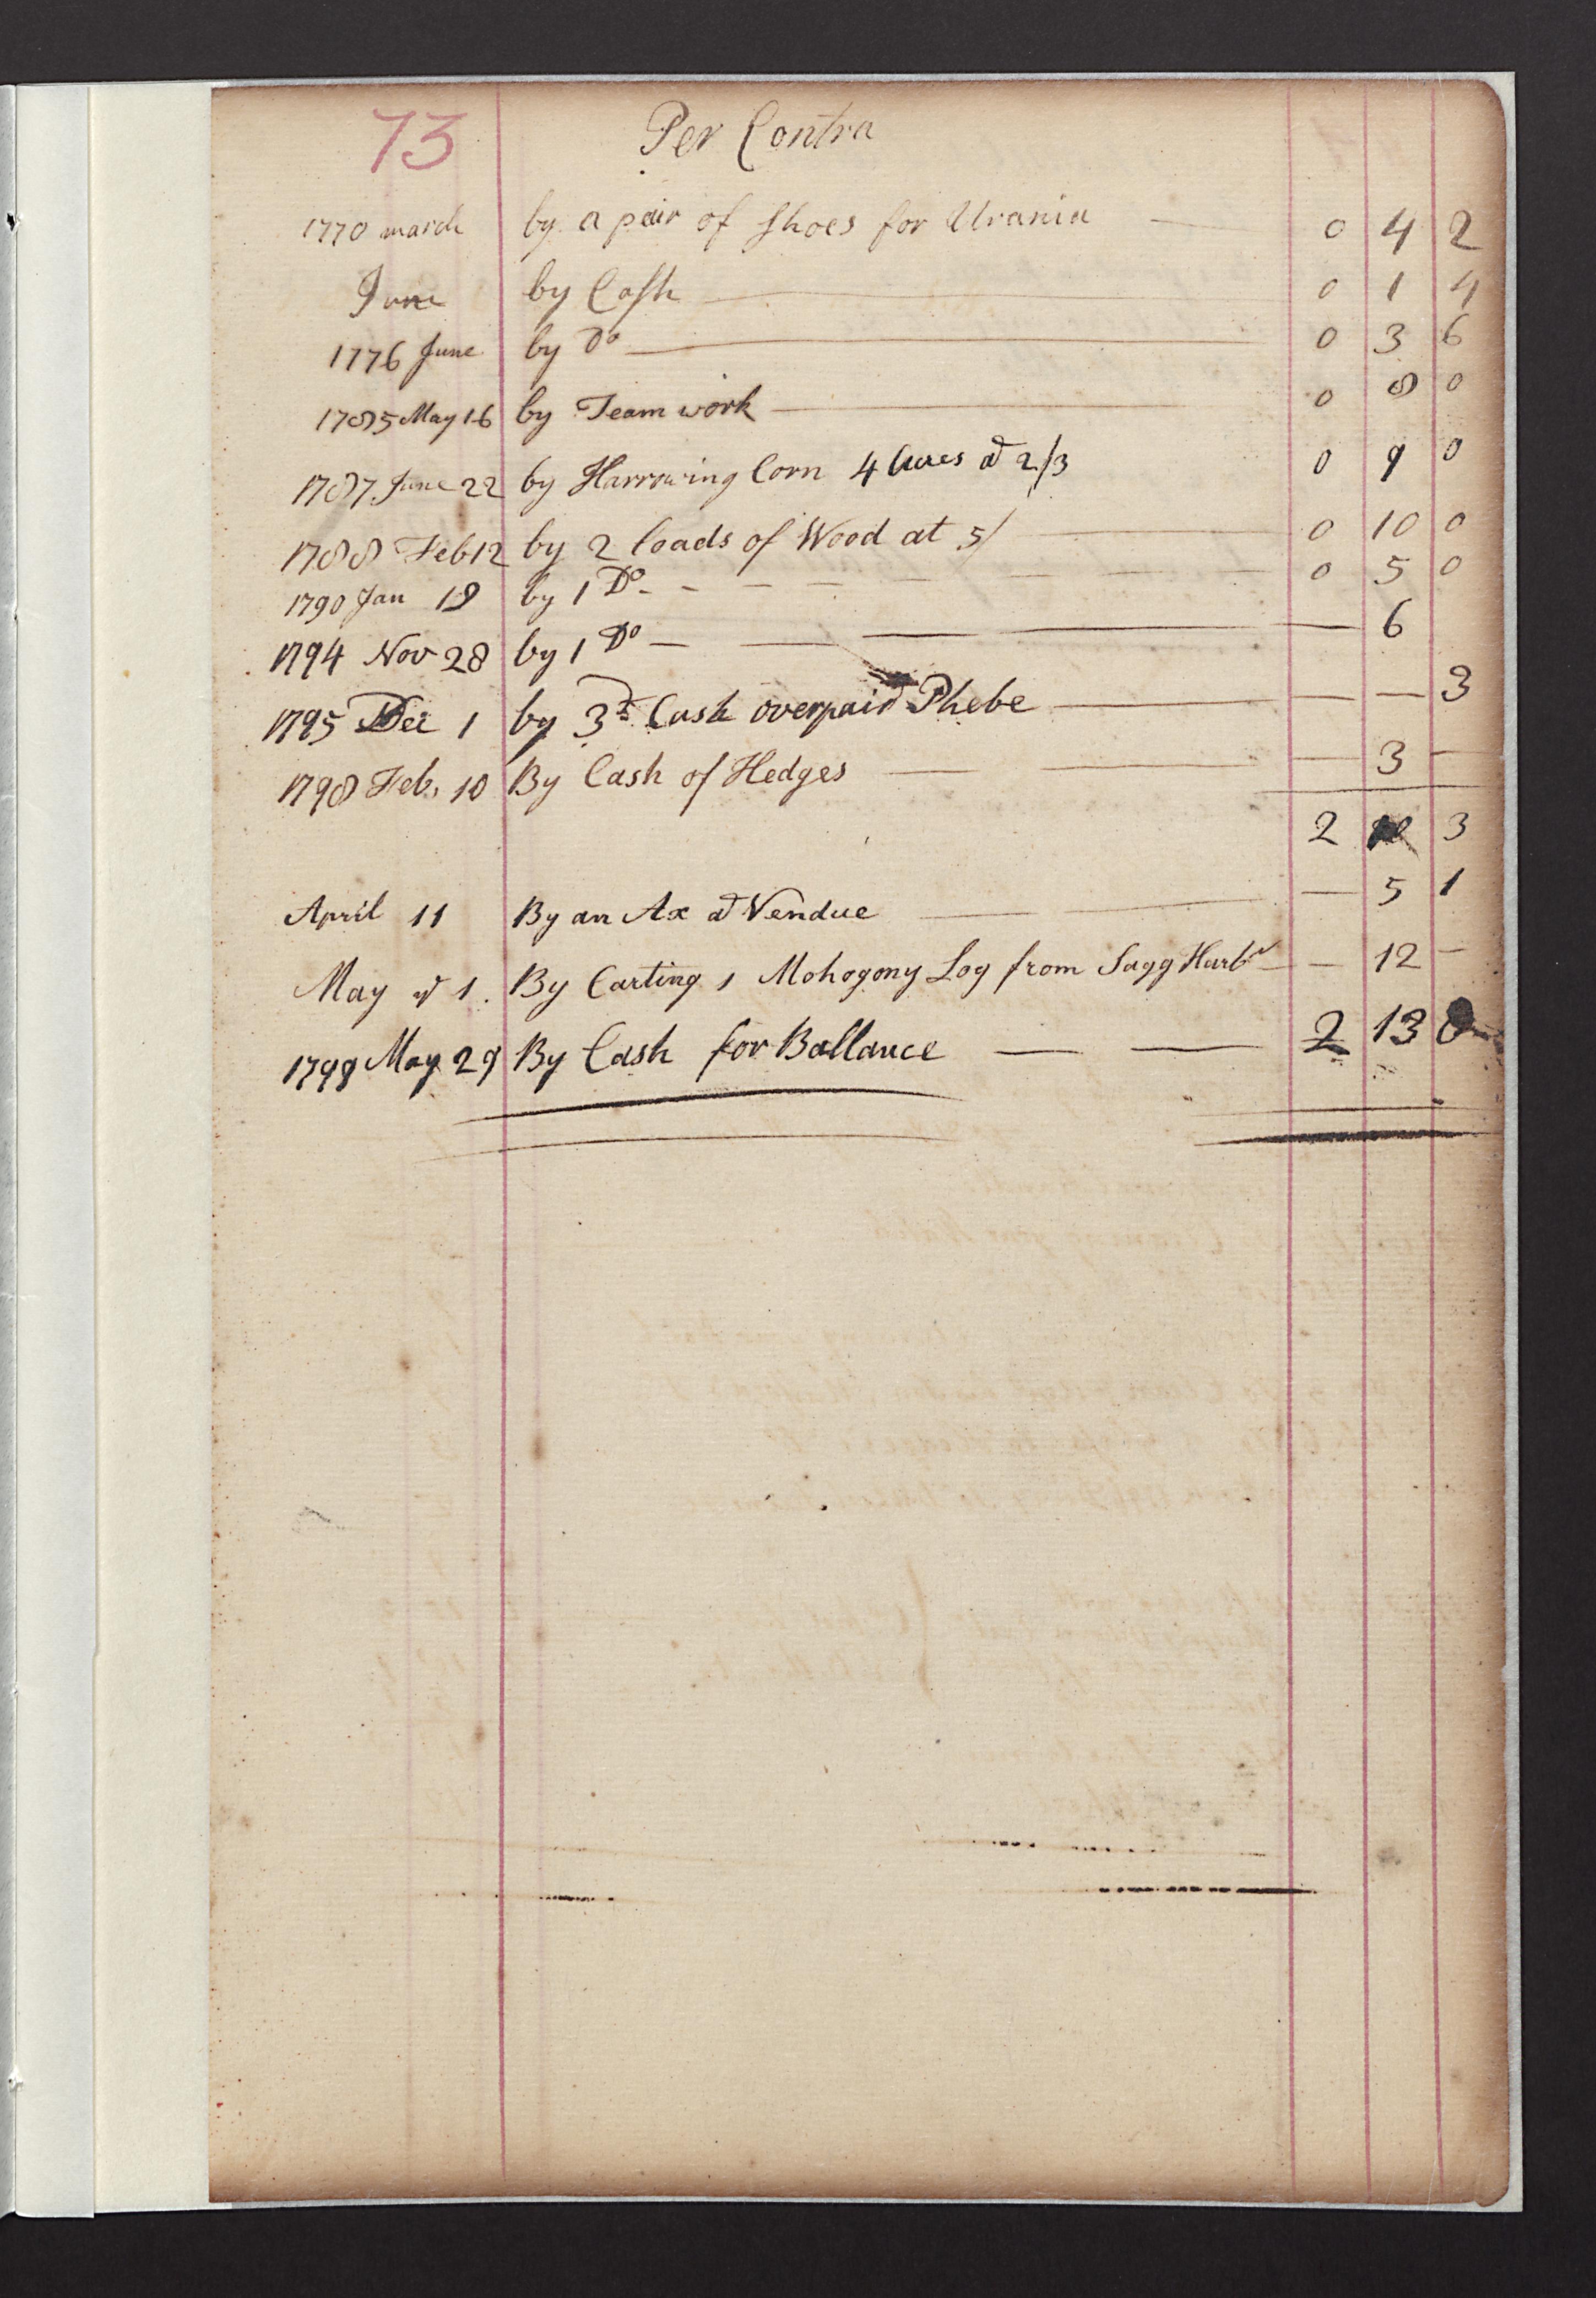 73 Per Contra
1770 march by a pair of Shoes for Urania — 0 4 2
June by Cash — 0 1 4
1776 June by Do — 0 3 6
1785 May 16 by Team work — 0 8 0
1787 June 22 by Harrowing Corn 4 Acres at 2/3 0 9 0
1788 Feb 12 by 2 loads of Wood at 5/ — 0 10 0
1790 Jan 19 by 1 Do - - - - - - 0 5 0
1794 Nov 28 by 1 Do — — — — 6
1795 Dec 1 by 3d Cash overpaid Phebe — — — 3
1798 Feb. 10 By Cash of Hedges — — — 3 —
2 3
April 11 By an Ax at Vendue — — — 5 1
May 1. By Carting 1 Mohogony Log from Sagg Harbr — — 12 —
1798 May 29 By Cash for Ballance — — 2 13